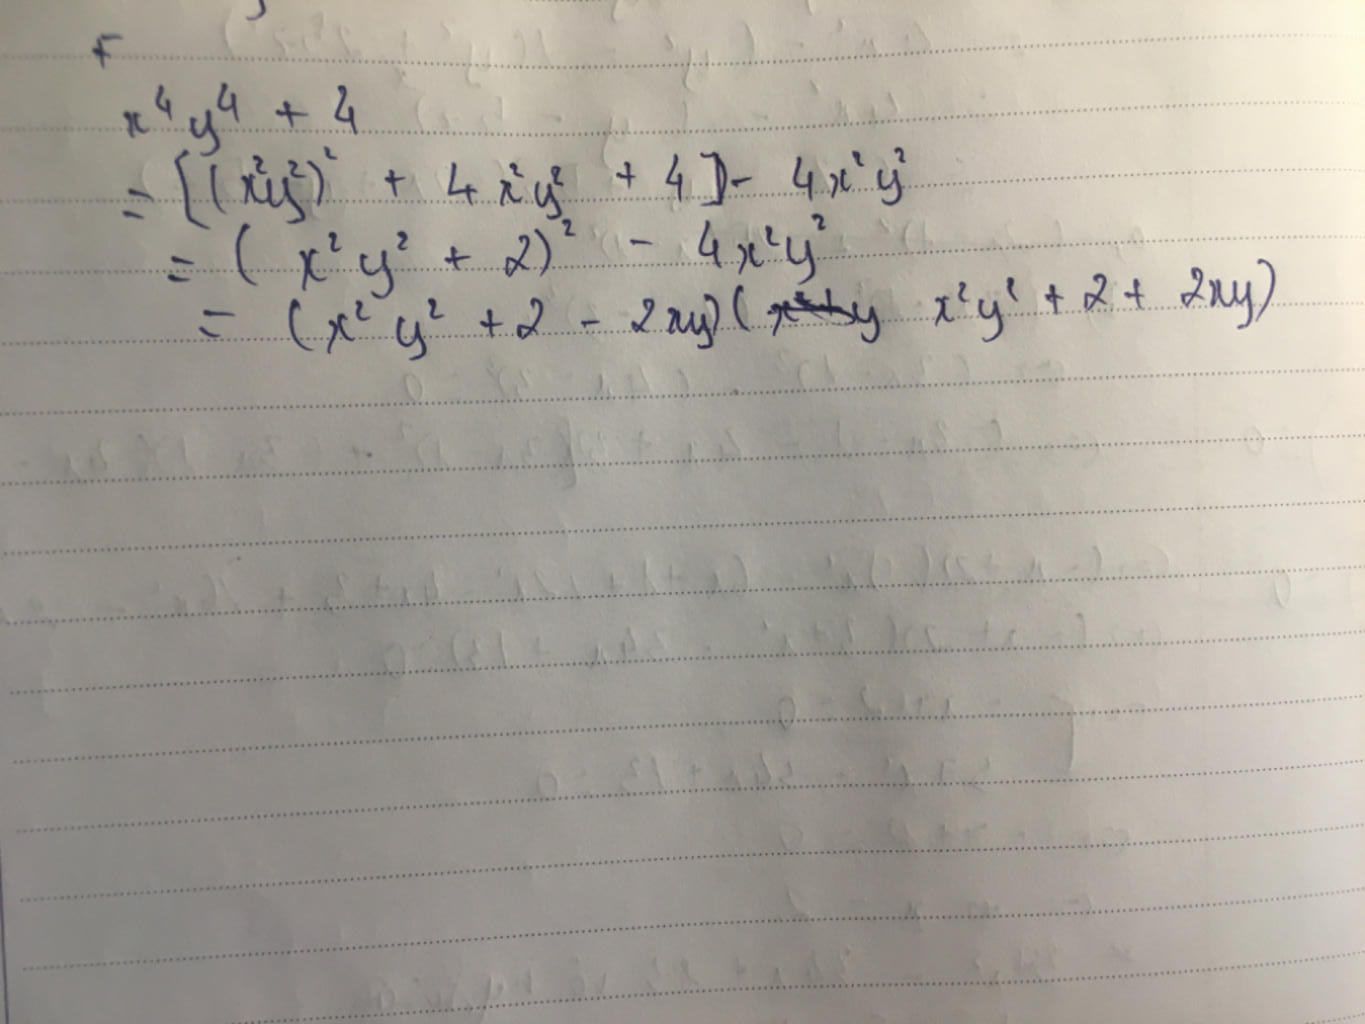 x⁴y⁴ + 4
= [(x²y²)² + 4x²y² + 4] - 4x²y²
= (x²y² + 2)² - 4x²y²
= (x²y² + 2 - 2xy)( x²y² + 2 + 2xy)